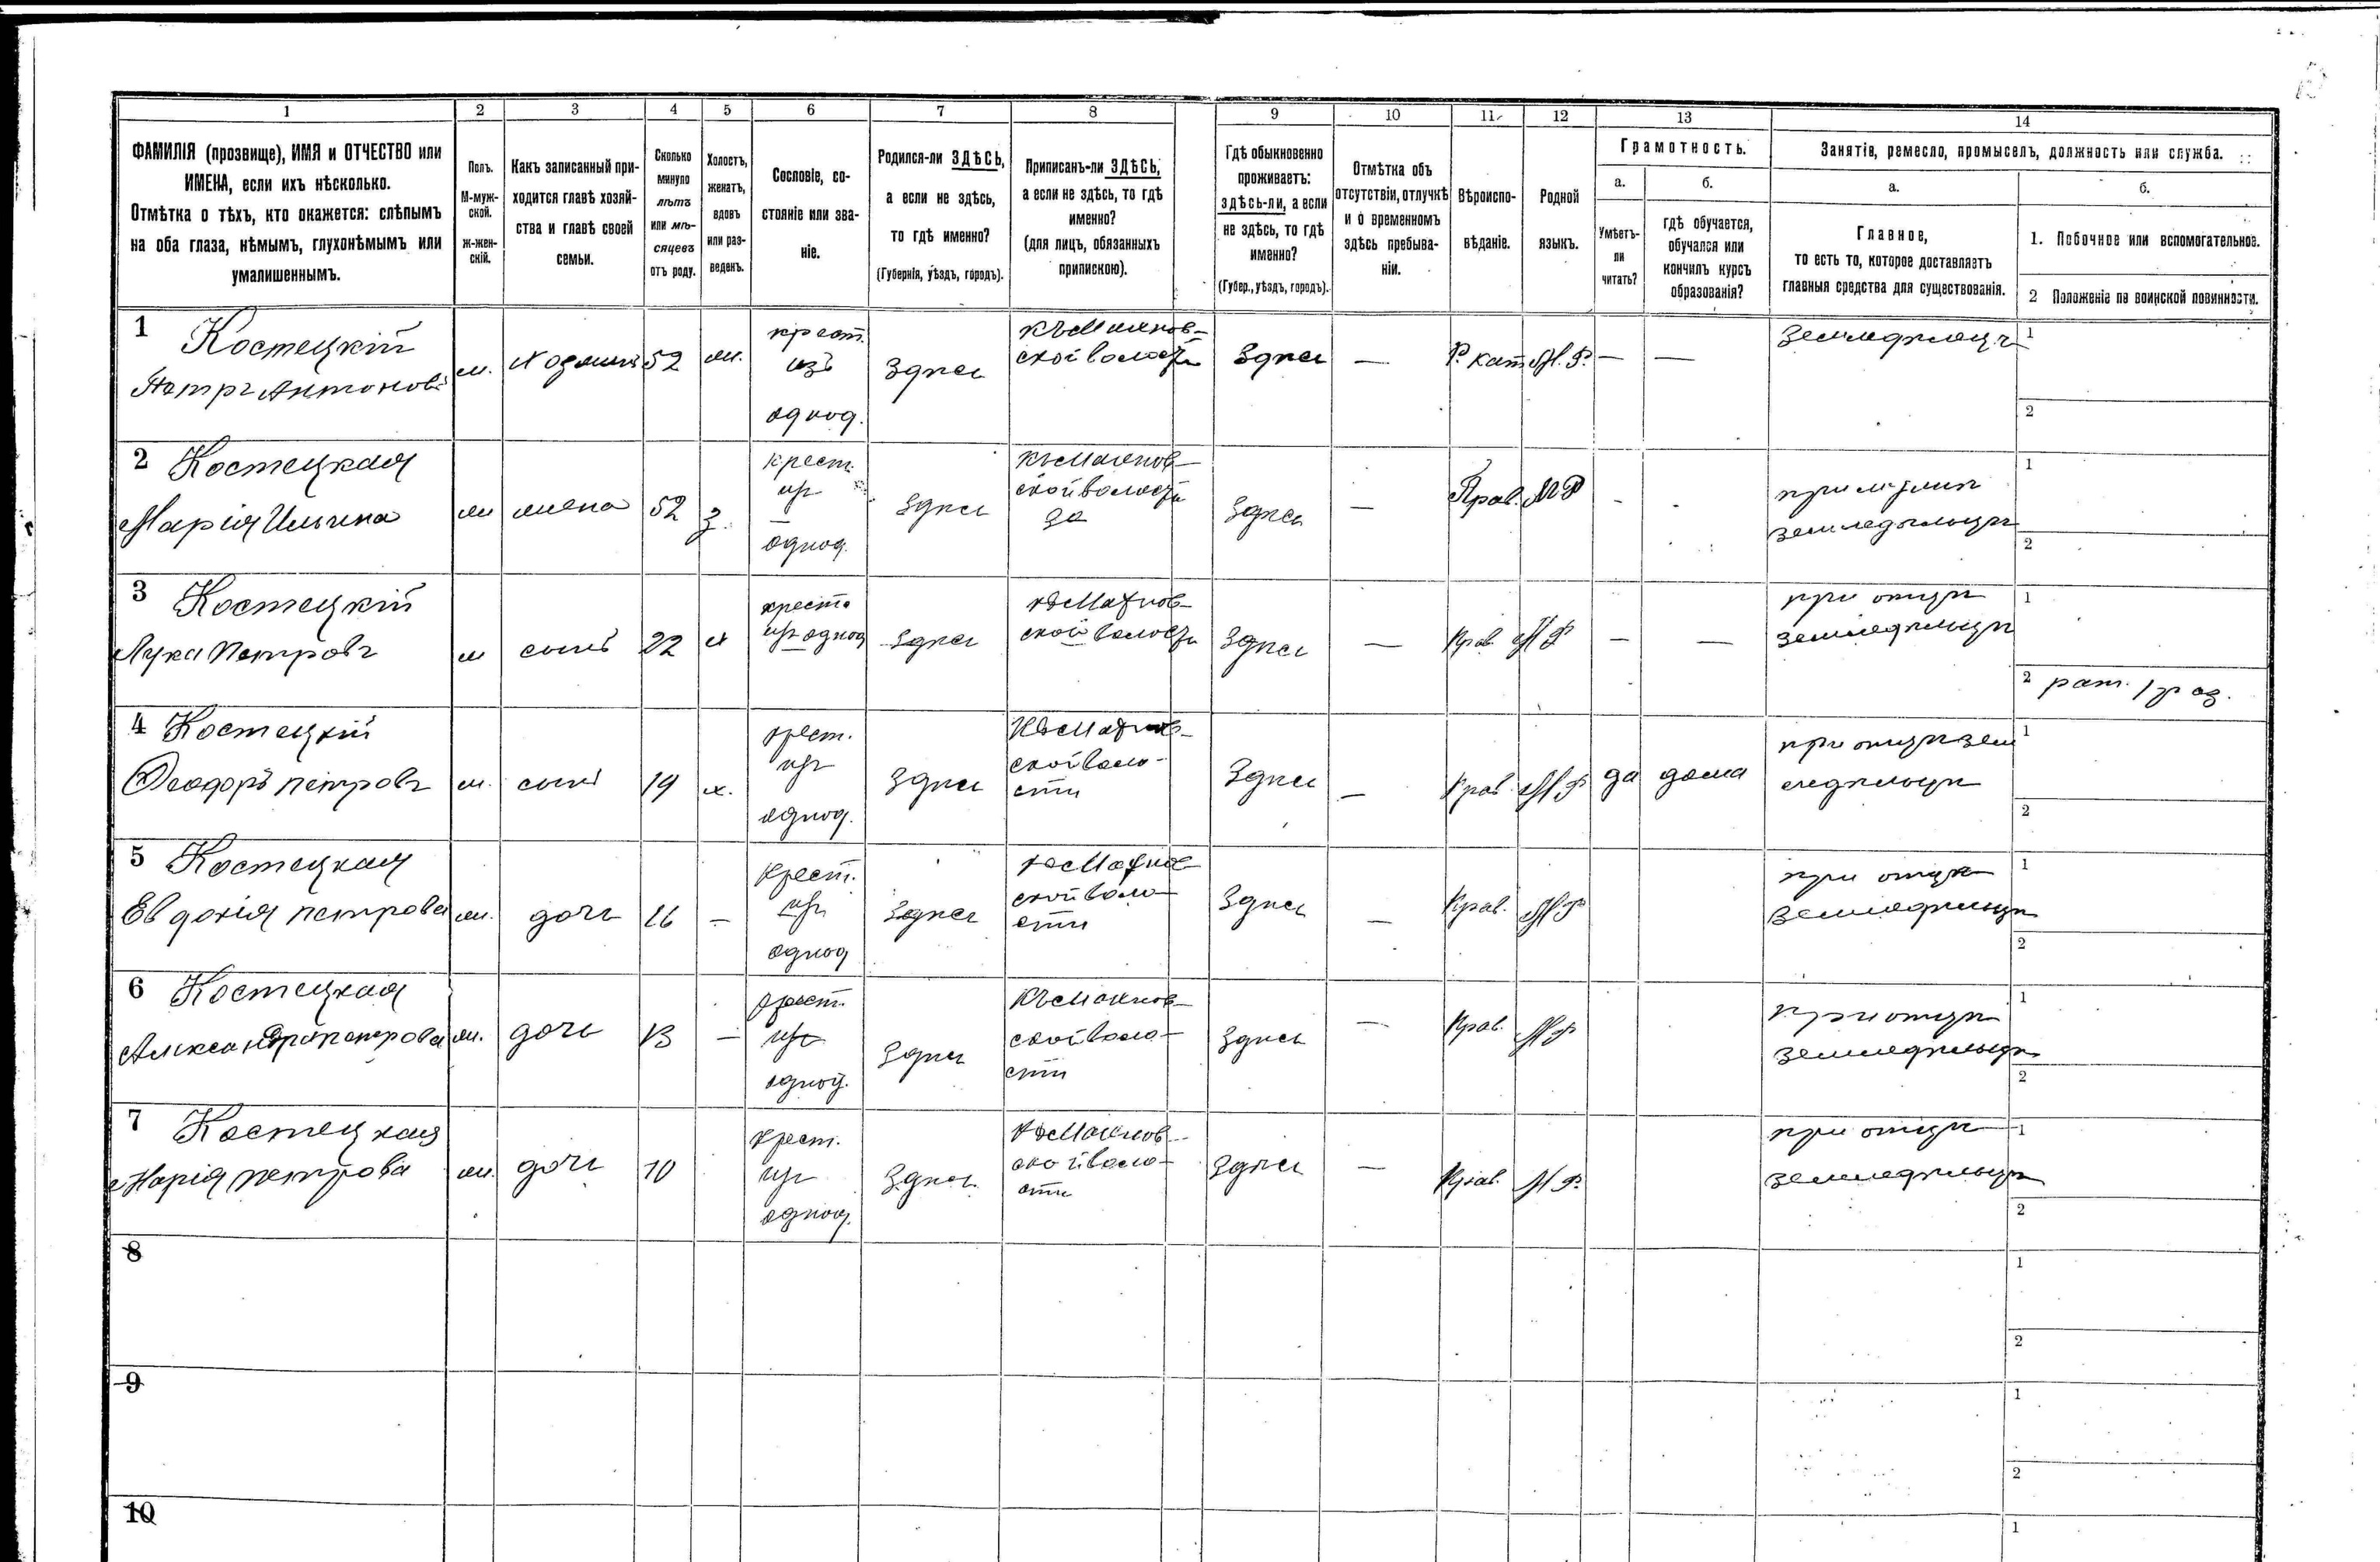 1 2 3 4 5 6 7 8 9 10 11 12 13 14
ФАМИЛІЯ (прозвище), ИМЯ и ОТЧЕСТВО или
ИМЕНА, если ихъ нѣсколько.
Отмѣтка о тѣхъ, кто окажется: слѣпымъ
на оба глаза, нѣмымъ, глухонѣмымъ или
умалишеннымъ.
Полъ.
М-муж-
ской.
ж-жен-
скій.
Какъ записанный при-
ходится главѣ хозяй-
ства и главѣ своей
семьи.
Сколько
минуло
лѣтъ
или мѣ-
сяцевъ
отъ роду.
Холостъ,
женатъ,
вдовъ
или раз-
веденъ.
Сословіе, со-
стояніе или зва-
ніе.
Родился-ли ЗДѢСЬ,
а если не здѣсь,
то гдѣ именно?
(Губернія, уѣздъ, городъ).
Приписанъ-ли ЗДѢСЬ,
а если не здѣсь, то гдѣ
именно?
(для лицъ, обязанныхъ
припискою).
Гдѣ обыкновенно
проживаетъ:
здѣсь-ли, а если
не здѣсь, то гдѣ
именно?
(Губер., уѣздъ, городъ).
Отмѣтка объ
отсутствіи, отлучкѣ
и о временномъ
здѣсь пребыва-
ніи.
Вѣроиспо-
вѣданіе.
Родной
языкъ.
Грамотность.
а.
Умѣетъ-
ли
читать?
б.
гдѣ обучается,
обучался или
кончилъ курсъ
образованія?
Занятіе, ремесло, промыселъ, должность или служба.
а.
Главное,
то есть то, которое доставляетъ
главныя средства для существованія.
б.
1. Побочное или вспомогательное.
2 Положеніе по воинской повинности.
1 Костецкій
Петръ Антоновъ
м.
хозяинъ
52
ж.
крест.
изъ
однод.
Здѣсь
ской волости
Здѣсь
—
Р. кат.
М. Р.
—
—
Земледѣлецъ
1
2
2 Костецкая
Марія Ильина
ж
жена
52
з.
крест.
изъ
однод.
Здѣсь
ской волости
Здѣсь
—
Прав.
М Р
-
при мужѣ
земледѣльцѣ
1
2
3 Костецкій
Лука Петровъ
м
сынъ
22
х
крест.
изъ однод
Здѣсь
ской волости
Здѣсь
—
Прав.
М Р
—
—
при отцѣ
земледѣльцѣ
1
2 рат. 1 раз.
4 Костецкій
Ѳеодоръ Петровъ
м.
сынъ
19
х.
крест.
изъ
однод.
Здѣсь
ской воло-
сти
Здѣсь
—
Прав.
М Р
да
дома
при отцѣ зем
ледѣльцѣ
1
2
5 Костецкая
Евдокія Петрова
ж.
дочь
16
—
крест.
изъ
однод
Здѣсь
ской воло-
сти
Здѣсь
—
Прав.
М Р
при отцѣ
земледѣльцѣ
1
2
6 Костецкая
Александра Петрова
ж.
дочь
13
—
крест.
изъ
однод.
Здѣсь
ской воло-
сти
Здѣсь
—
Прав.
М Р
при отцѣ
земледѣльцѣ
1
2
7 Костецкая
Марія Петрова
ж.
дочь
10
крест.
изъ
однод.
Здѣсь
ской воло-
сти
Здѣсь
—
Прав.
М Р.
при отцѣ
земледѣльцѣ
1
2
8
1
2
9
1
2
10
1